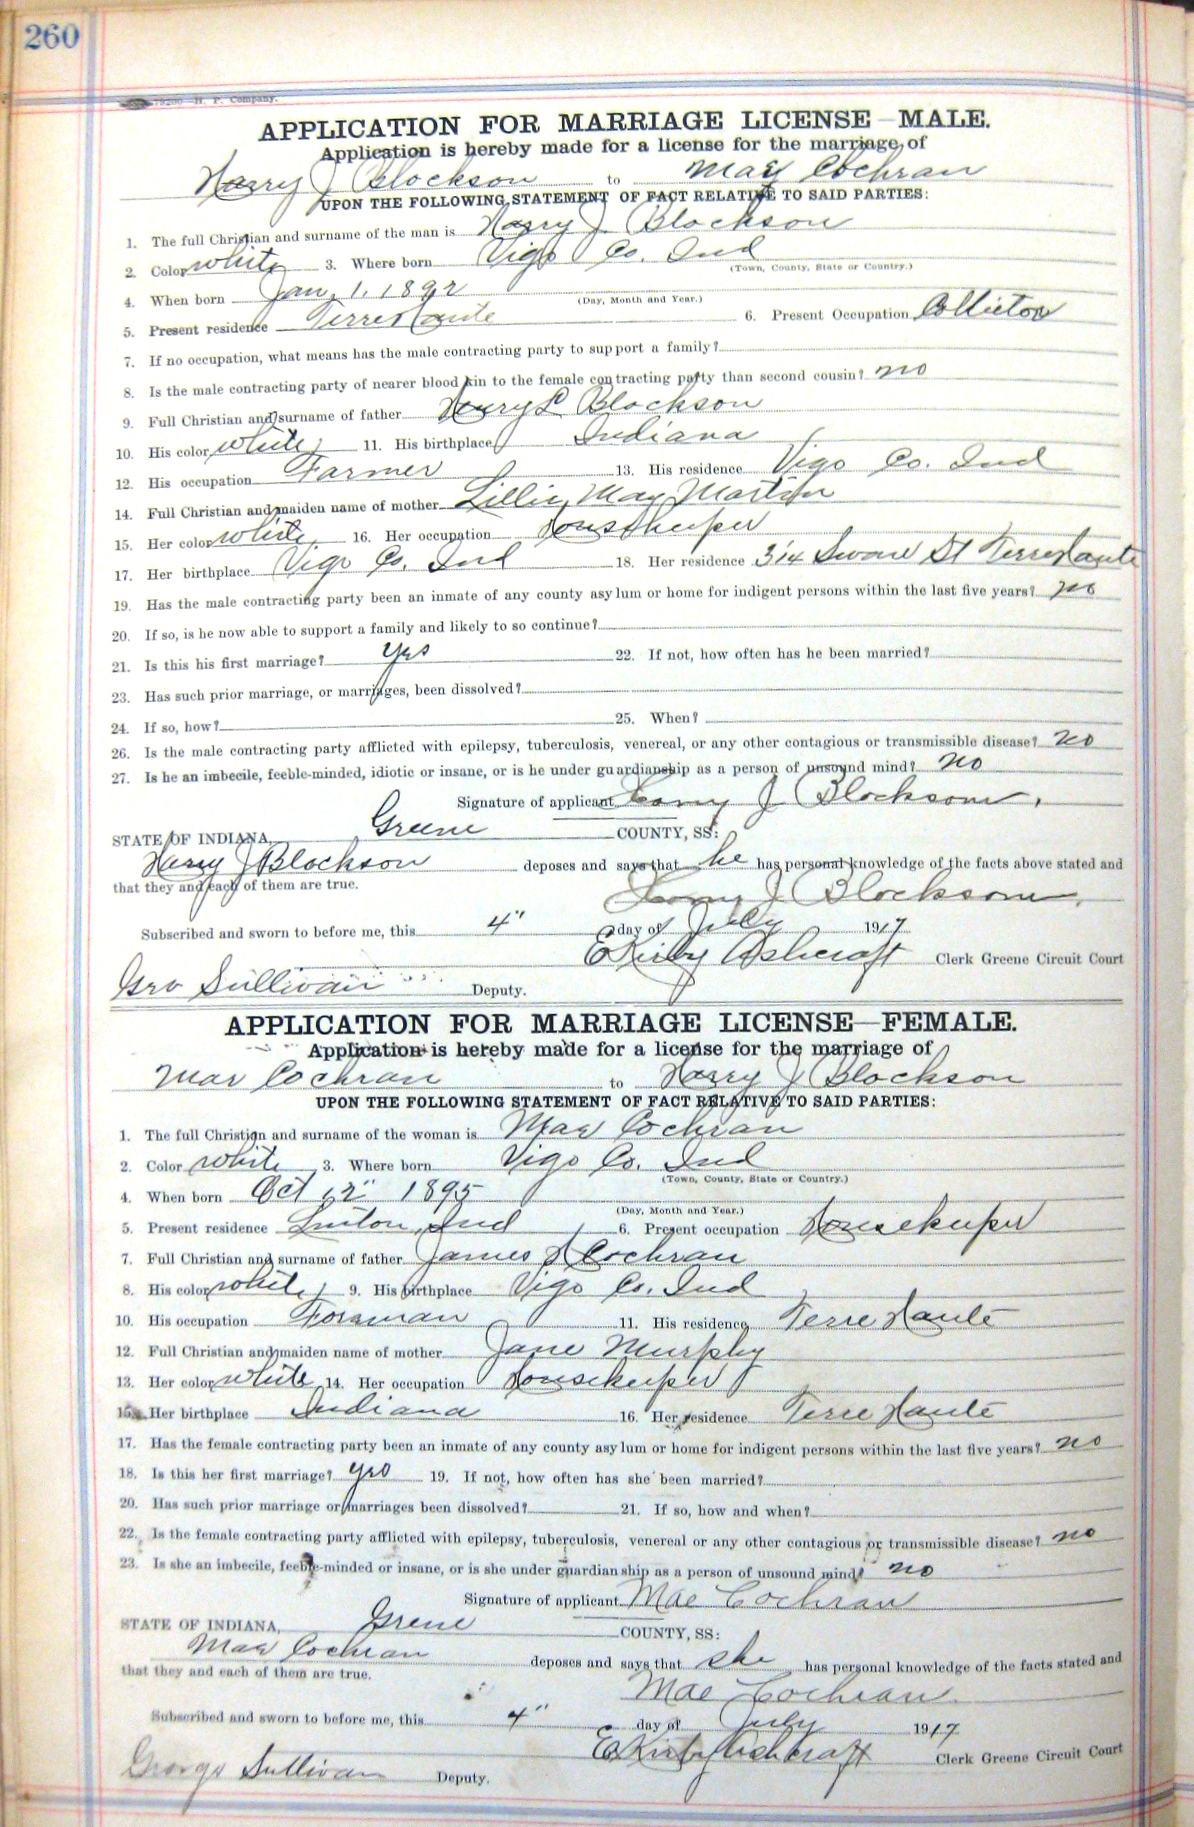 260
H. P. Company.
APPLICATION FOR MARRIAGE LICENSE—MALE.
Application is hereby made for a license for the marriage of
Harry J Blockson to Mae Cochran
UPON THE FOLLOWING STATEMENT OF FACT RELATIVE TO SAID PARTIES:
1. The full Christian and surname of the man is Harry J Blockson
2. Color white 3. Where born Vigo Co. Ind
(Town, County, State or Country.)
4. When born Jan, 1, 1892
(Day, Month and Year.)
5. Present residence Terre Haute 6. Present Occupation Collector
7. If no occupation, what means has the male contracting party to support a family?
8. Is the male contracting party of nearer blood kin to the female contracting party than second cousin? no
9. Full Christian and surname of father L Blockson
10. His color white 11. His birthplace Indiana
12. His occupation Farmer 13. His residence Vigo Co. Ind
14. Full Christian and maiden name of mother Lillie May Martin
15. Her color white 16. Her occupation Housekeeper
17. Her birthplace Vigo Co. Ind 18. Her residence 314 St Terre Haute
19. Has the male contracting party been an inmate of any county asylum or home for indigent persons within the last five years? no
20. If so, is he now able to support a family and likely to so continue?
21. Is this his first marriage? yes 22. If not, how often has he been married?
23. Has such prior marriage, or marriages, been dissolved?
24. If so, how? 25. When?
26. Is the male contracting party afflicted with epilepsy, tuberculosis, venereal, or any other contagious or transmissible disease? no
27. Is he an imbecile, feeble-minded, idiotic or insane, or is he under guardianship as a person of unsound mind? no
Signature of applicant Harry J Blocksom.
STATE OF INDIANA, Greene COUNTY, SS:
Harry J Blockson deposes and says that he has personal knowledge of the facts above stated and
that they and each of them are true.
Harry J Blocksom.
Subscribed and sworn to before me, this 4" day of July 1917
E Kirby Ashcraft Clerk Greene Circuit Court
Geo Sullivan Deputy.
APPLICATION FOR MARRIAGE LICENSE—FEMALE.
Application is hereby made for a license for the marriage of
Mae Cochran to Harry J Blockson
UPON THE FOLLOWING STATEMENT OF FACT RELATIVE TO SAID PARTIES:
1. The full Christian and surname of the woman is Mae Cochran
2. Color white 3. Where born Vigo Co. Ind
(Town, County, State or Country.)
4. When born Oct 12" 1895
(Day, Month and Year.)
5. Present residence Linton, Ind 6. Present occupation Housekeeper
7. Full Christian and surname of father James Cochran
8. His color white 9. His birthplace Vigo Co. Ind
10. His occupation Foreman 11. His residence Terre Haute
12. Full Christian and maiden name of mother Jane Murphy
13. Her color white 14. Her occupation Housekeeper
15. Her birthplace Indiana 16. Her residence Terre Haute
17. Has the female contracting party been an inmate of any county asylum or home for indigent persons within the last five years? no
18. Is this her first marriage? yes 19. If not, how often has she been married?
20. Has such prior marriage or marriages been dissolved? 21. If so, how and when?
22. Is the female contracting party afflicted with epilepsy, tuberculosis, venereal or any other contagious or transmissible disease? no
23. Is she an imbecile, feeble-minded or insane, or is she under guardianship as a person of unsound mind? no
Signature of applicant Mae Cochran
STATE OF INDIANA, Greene COUNTY, SS:
Mae Cochran deposes and says that she has personal knowledge of the facts stated and
that they and each of them are true.
Mae Cochran
Subscribed and sworn to before me, this 4" day of July 1917
E Kirby Ashcraft Clerk Greene Circuit Court
George Sullivan Deputy.